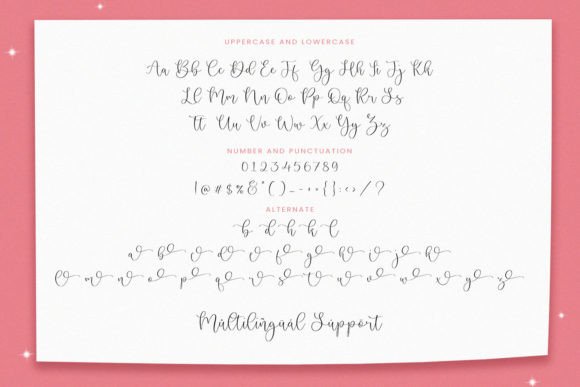 UPPERCASE AND LOWERCASE
Aa Bb Cc Dd Ee Ff Gg Hh Ii Jj Kk
Ll Mm Nn Oo Pp Qq Rr Ss
Tt Uu Vv Ww Xx Yy Zz
NUMBER AND PUNCTUATION
0123456789
ALTERNATE
b d h k l
a b c d e f g h i j k
l m n o p q r s t u v w x y z
Multilingual Support